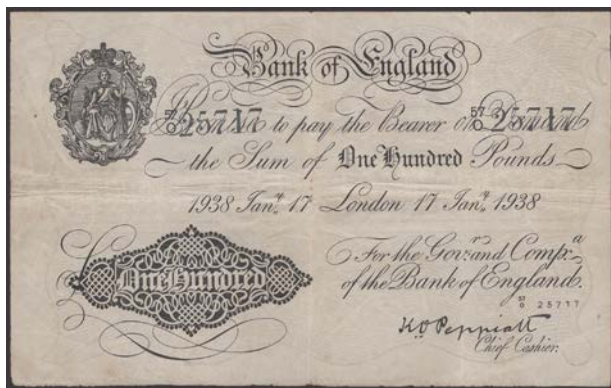 Bank of England
57/O 25717 57/O 25717
I Promise to pay the Bearer on Demand
the Sum of One Hundred Pounds
1938 Janʸ. 17 London 17 Janʸ. 1938
For the Govʳ. and Compᵃ.
of the Bank of England.
£ One Hundred
57/O 25717
K O Peppiatt
Chief Cashier.